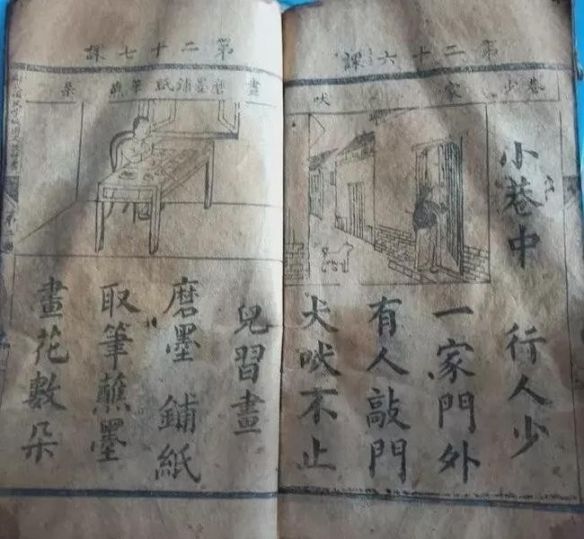 第二十六課
巷 少 家 吠
小巷中 行人少
一家門外
有人敲門
犬吠不止
第二十七課
畫 磨 墨 鋪 紙 筆 蘸 朵
兒習畫
磨墨 鋪紙
取筆蘸墨
畫花數朵